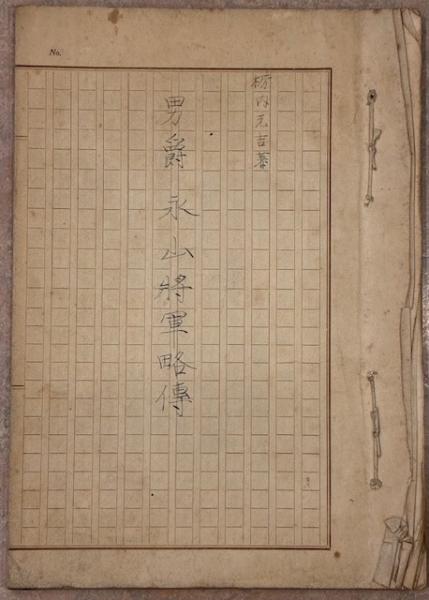 No.
栃内元吉著
男爵永山將軍略傳